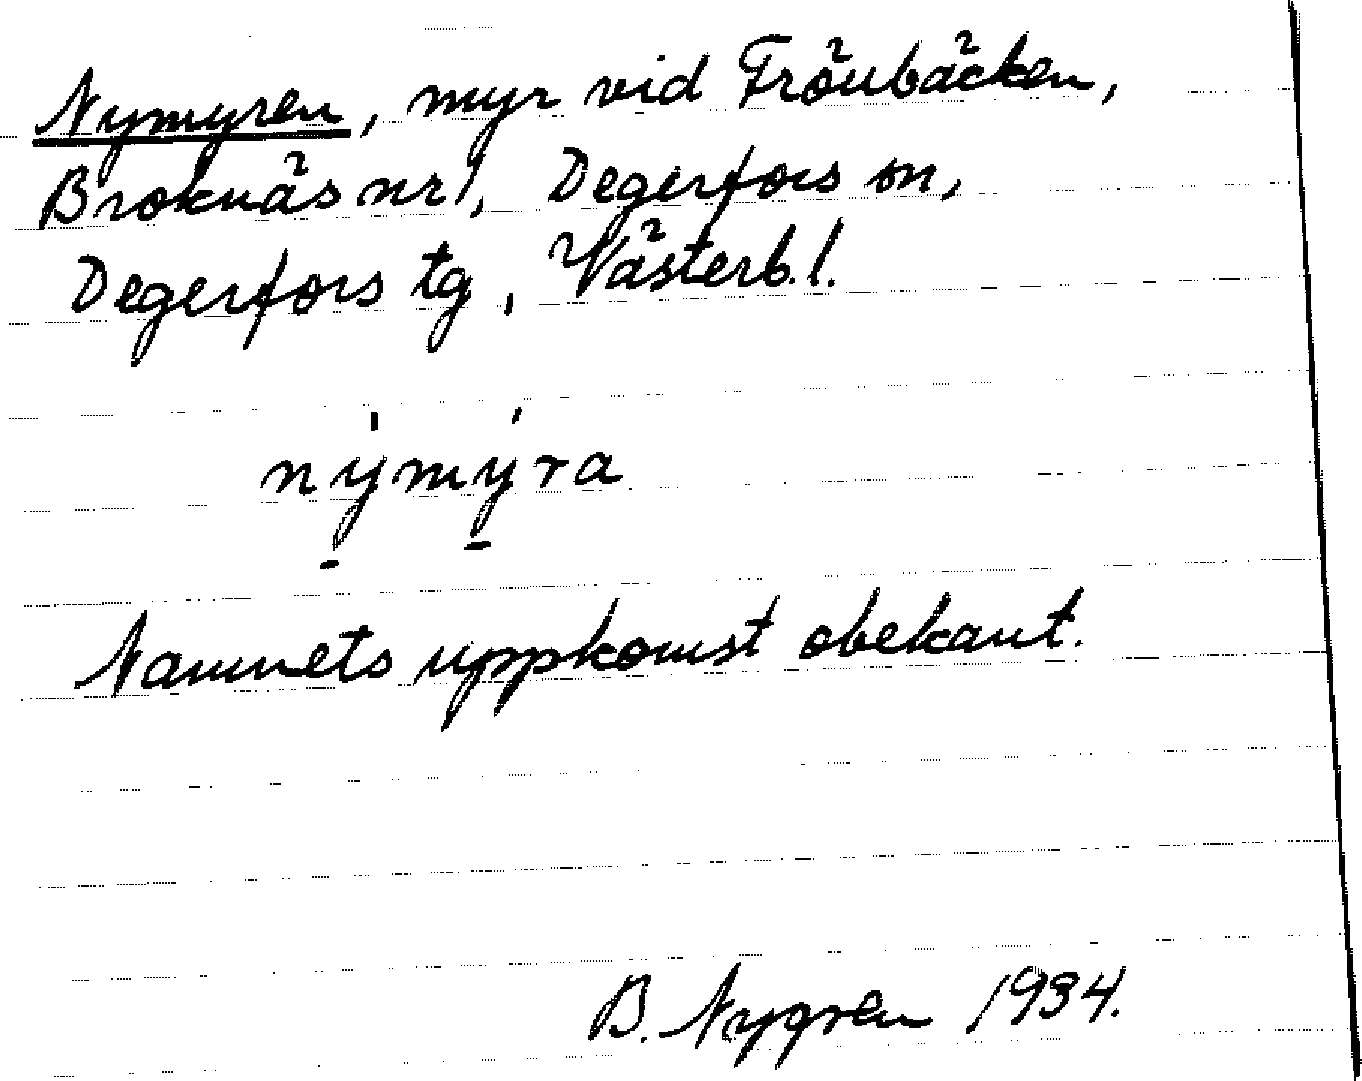 Nymyren, myr vid Frönbäcken,
Broknäs nr 1, Degerfors sn,
Degerfors tg, Västerb. l.
nymyra
Namnets uppkomst obekant.
B. Nygren 1934.